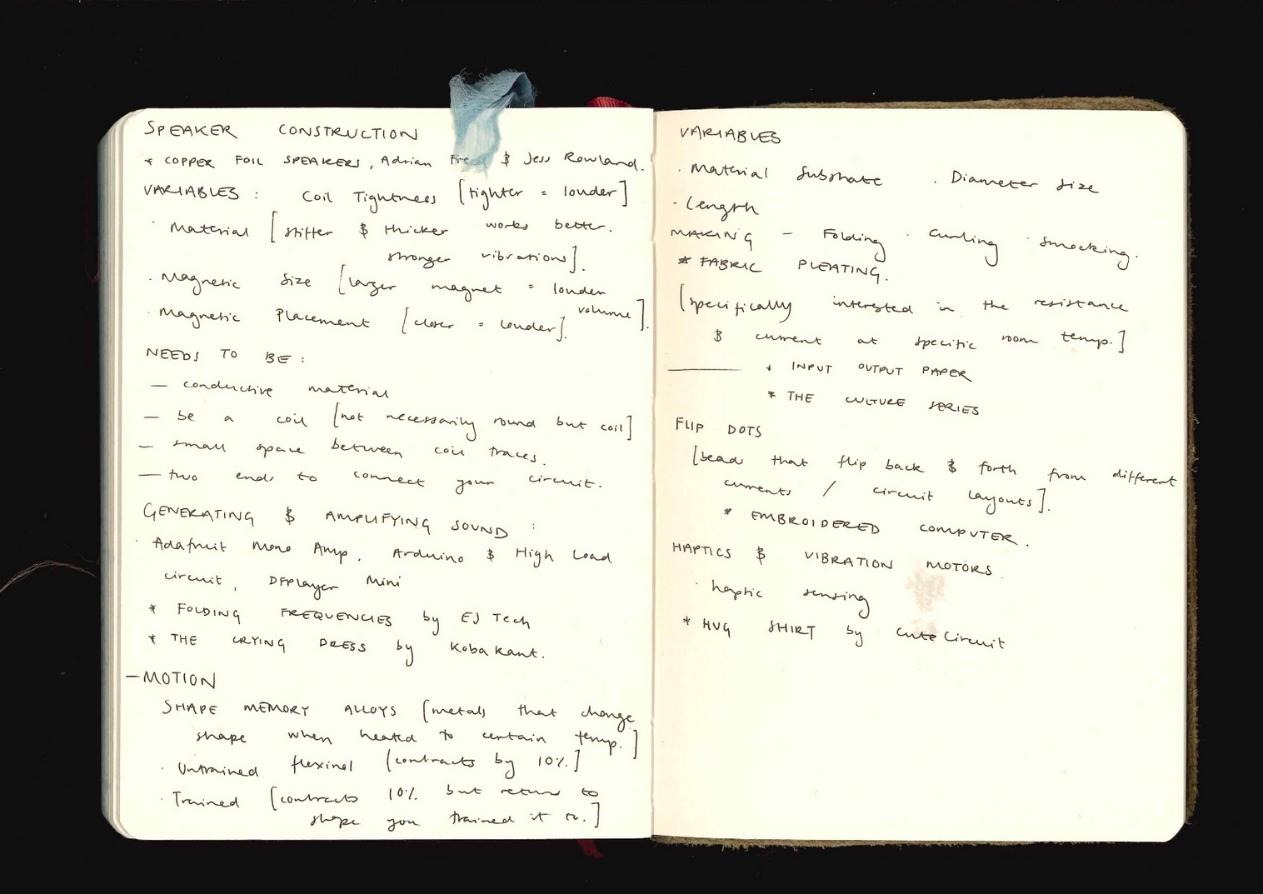 SPEAKER CONSTRUCTION
* COPPER FOIL SPEAKERS, Adrian Freed & Jess Rowland.
VARIABLES : Coil Tightness [tighter = louder]
· Material [stiffer & thicker works better.
stronger vibrations].
· Magnetic Size [larger magnet = louder
volume].
· Magnetic Placement [closer = louder].
NEEDS TO BE :
— conductive material
— be a coil [not necessarily round but coil]
— small space between coil traces.
— two ends to connect your circuit.
GENERATING & AMPLIFYING SOUND :
· Adafruit Mono Amp, Arduino & High Load
circuit, DFplayer Mini
* FOLDING FREQUENCIES by EJ Tech
* THE CRYING DRESS by Kobakant.
— MOTION
SHAPE MEMORY ALLOYS [metals that change
shape when heated to certain temp.]
· Untrained flexinol [contracts by 10%.]
· Trained [contracts 10% but return to
shape you trained it to.]
VARIABLES
· Material Substrate · Diameter Size
· Length
MAKING — Folding · Curling · Smocking.
* FABRIC PLEATING.
[specifically interested in the resistance
& current at specific room temp.]
* INPUT OUTPUT PAPER
* THE CULTURE SERIES
FLIP DOTS
[bead that flip back & forth from different
currents / circuit layouts].
* EMBROIDERED COMPUTER.
HAPTICS & VIBRATION MOTORS
· haptic sensing
* HUG SHIRT by CuteCircuit